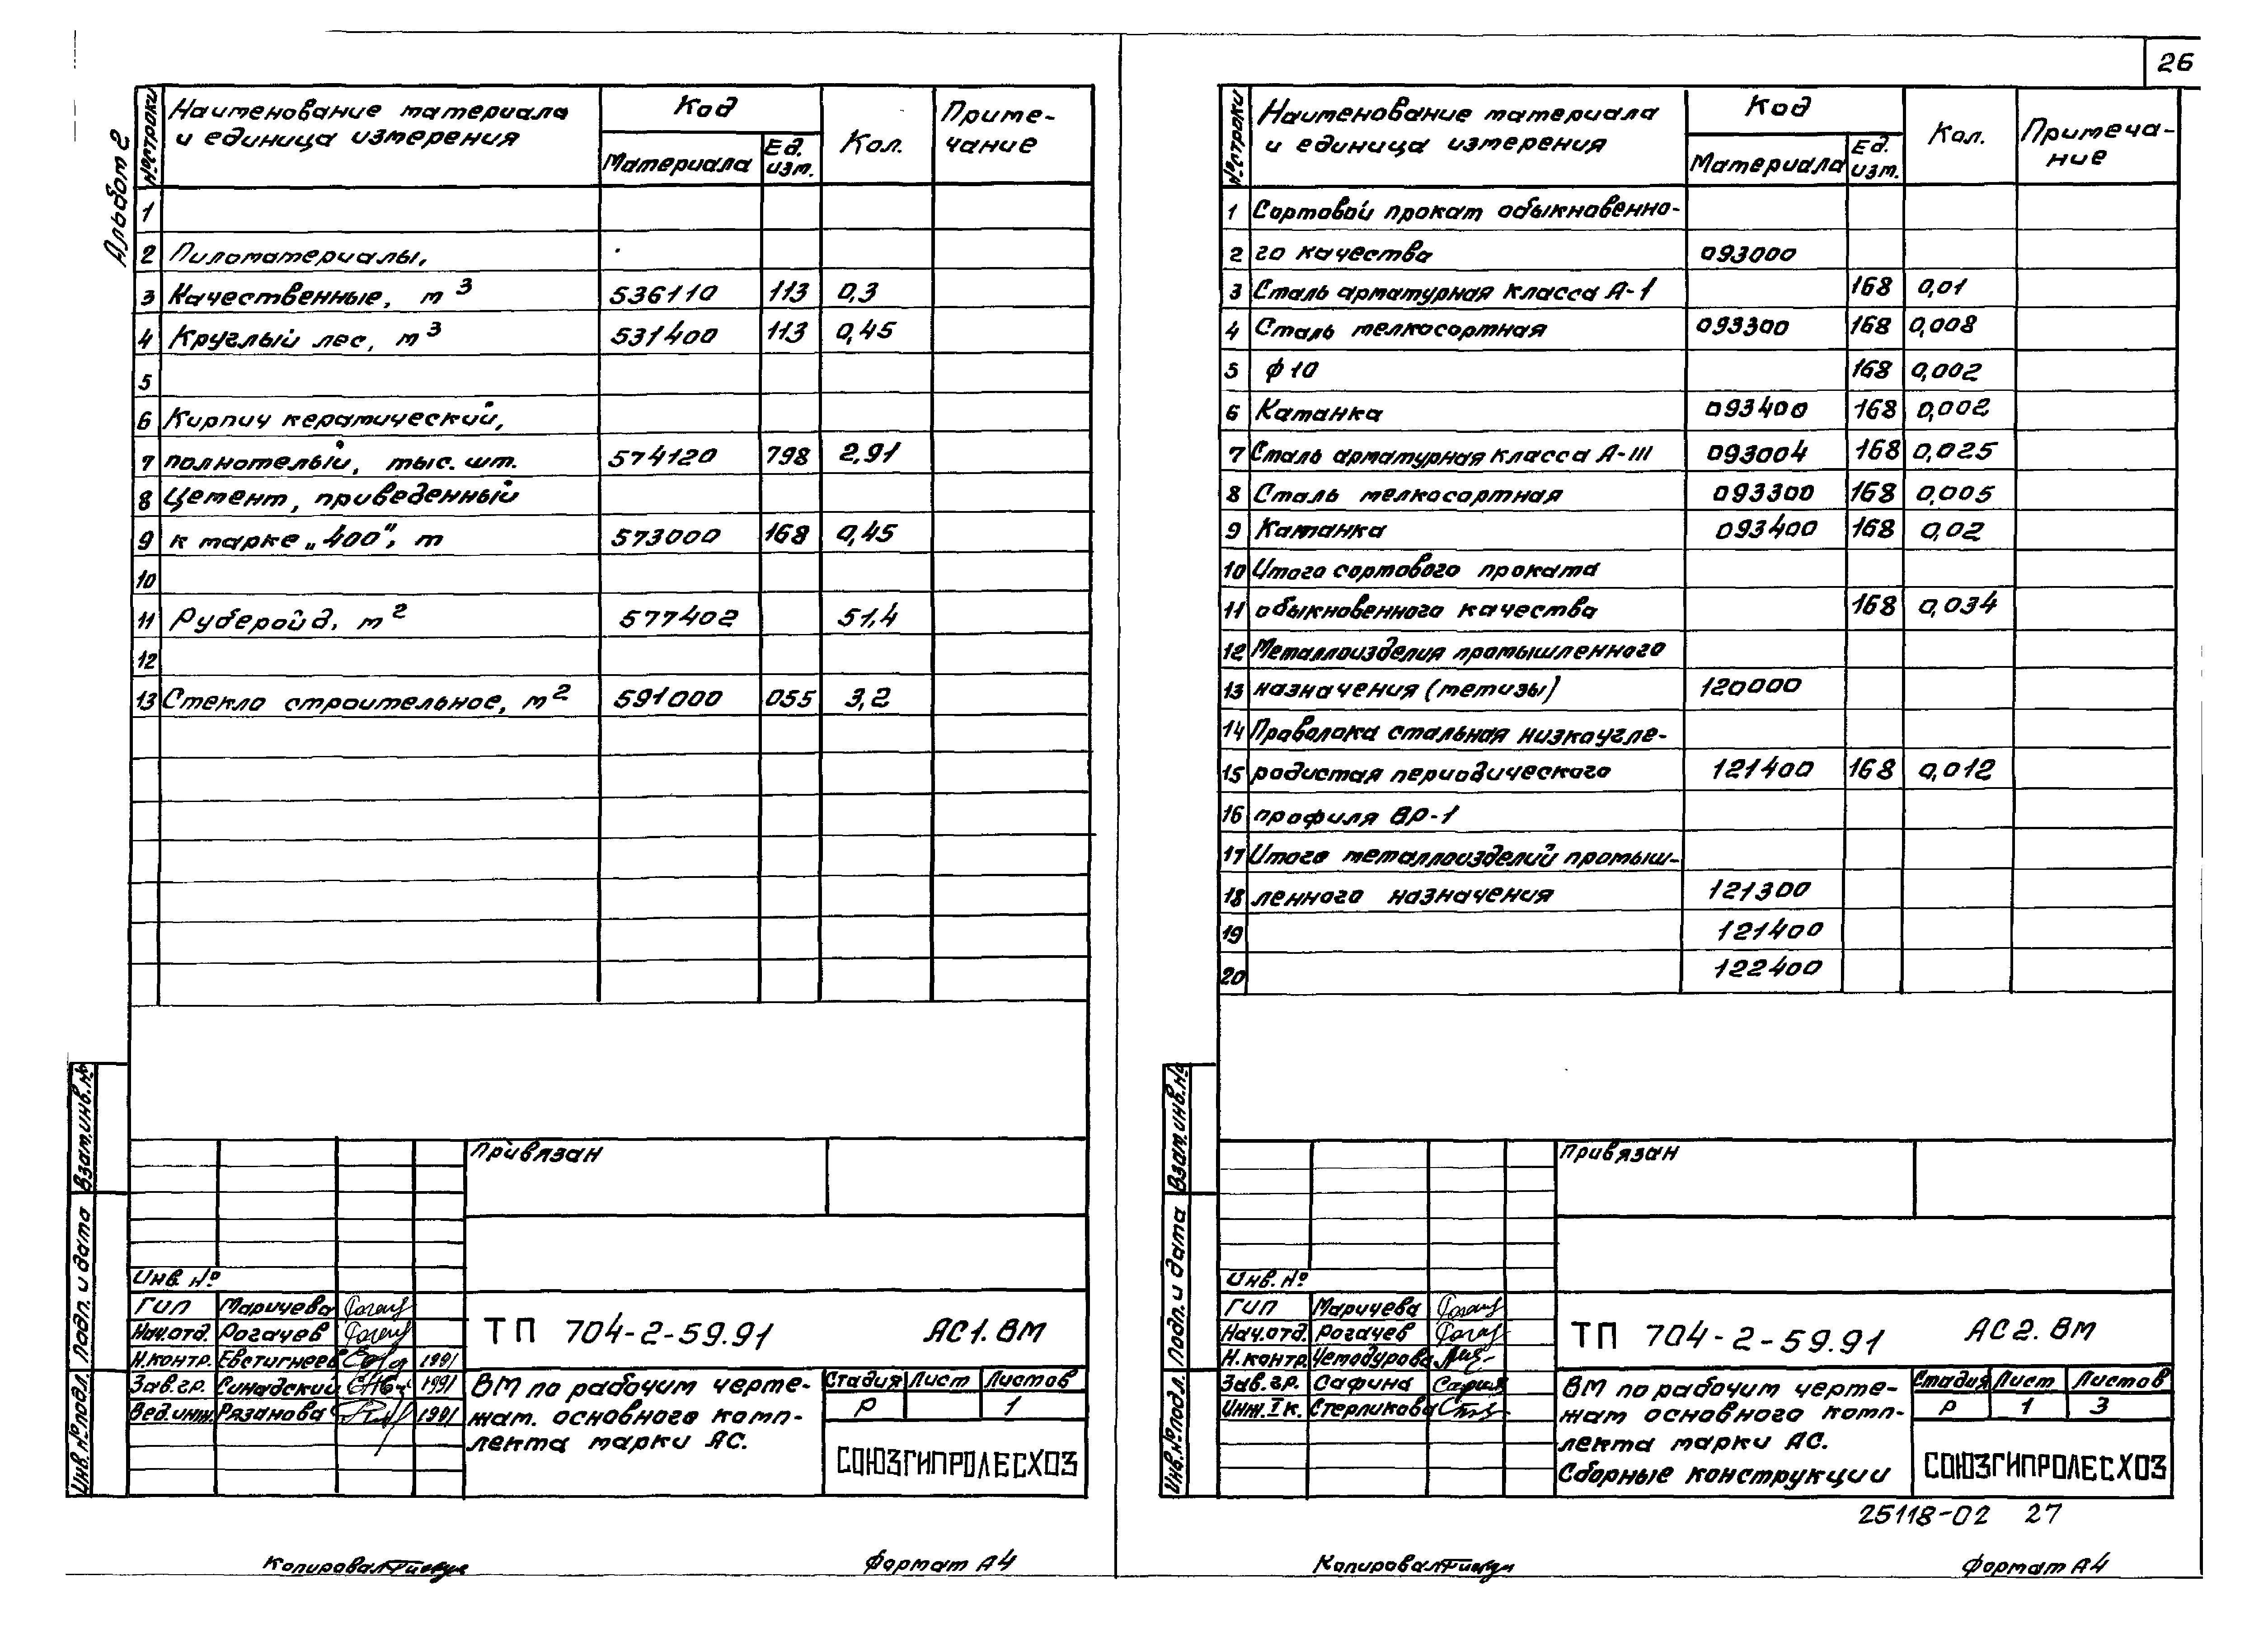 26
Альбом 2
№ строки
Наименование материала
и единица измерения
Код
Материала
Ед.
изм.
Кол.
Приме-
чание
1
2 Пиломатериалы,
3 Качественные, м3 536110 113 0,3
4 Круглый лес, м3 531400 113 0,45
5
6 Кирпич керамический,
7 полнотелый, тыс. шт. 574120 798 2,91
8 Цемент, приведенный
9 к марке „400“, т 573000 168 0,45
10
11 Рубероид, м2 577402 51,4
12
13 Стекло строительное, м2 591000 055 3,2
Взам.инв.№
Подп. и дата
Инв.№подл.
Привязан
Инв №
ГИП Маричева
Нач.отд. Рогачев
Н.контр. Евстигнеев 1991
Зав.гр. Синадский 1991
Вед.инж. Рязанова 1991
ТП 704-2-59.91 АС1.ВМ
ВМ по рабочим черте-
жам. основного комп-
лекта марки АС.
Стадия Лист Листов
Р 1
СОЮЗГИПРОЛЕСХОЗ
Копировал
Формат А4
№ строки
Наименование материала
и единица измерения
Код
Материала
Ед.
изм.
Кол.
Примеча-
ние
1 Сортовой прокат обыкновенно-
2 го качества 093000
3 Сталь арматурная класса А-1 168 0,01
4 Сталь мелкосортная 093300 168 0,008
5 ф10 168 0,002
6 Катанка 093400 168 0,002
7 Сталь арматурная класса А-III 093004 168 0,025
8 Сталь мелкосортная 093300 168 0,005
9 Катанка 093400 168 0,02
10 Итого сортового проката
11 обыкновенного качества 168 0,034
12 Металлоизделия промышленного
13 назначения (метизы) 120000
14 Проволока стальная низкоугле-
15 родистая периодического 121400 168 0,012
16 профиля ВР-1
17 Итого металлоизделий промыш-
18 ленного назначения 121300
19 121400
20 122400
Взам.инв.№
Подп. и дата
Инв.№подл.
Привязан
Инв. №
ГИП Маричева
Нач.отд. Рогачев
Н.контр. Чемодурова
Зав.гр. Сафина
Инж.Iк. Стерликова
ТП 704-2-59.91 АС2.ВМ
ВМ по рабочим черте-
жам основного комп-
лекта марки АС.
Сборные конструкции
Стадия Лист Листов
Р 1 3
СОЮЗГИПРОЛЕСХОЗ
25118-02 27
Копировал
Формат А4